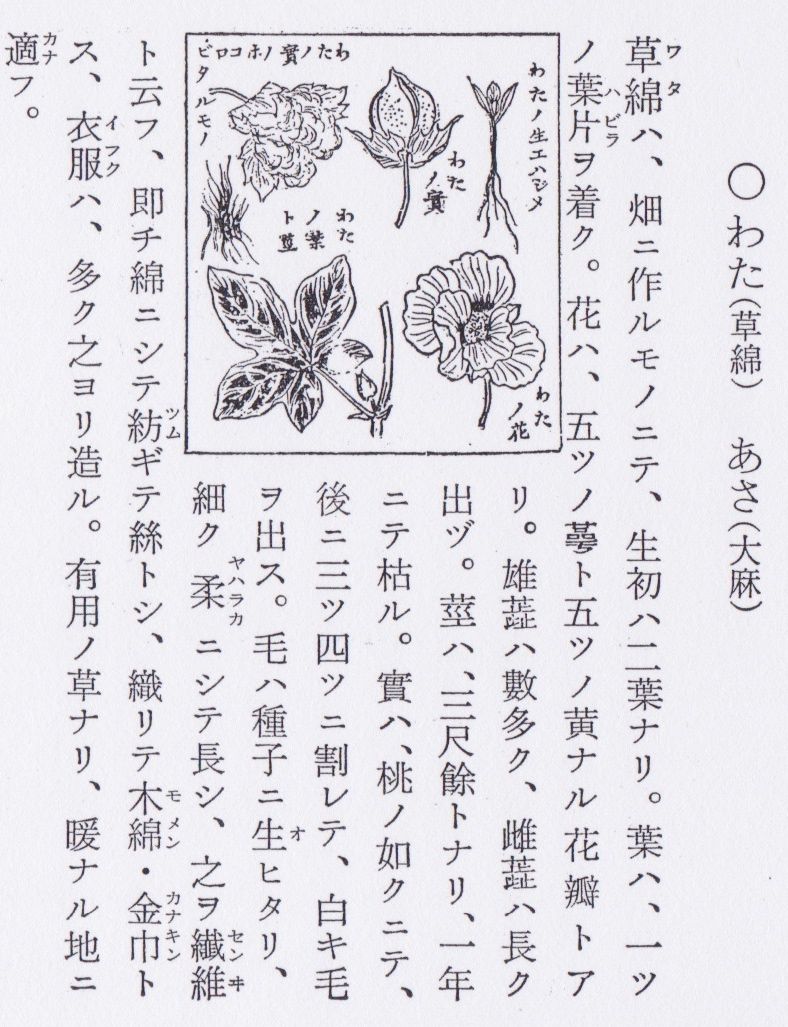 〇わた（草綿）　あさ（大麻）
草綿ハ、畑ニ作ルモノニテ、生初ハ二葉ナリ。葉ハ、一ツ
ワタ
ノ葉片ヲ着ク。花ハ、五ツノ蕚ト五ツノ黄ナル花瓣トア
ハビラ
リ。雄蕋ハ數多ク、雌蕋ハ長ク
出ヅ。莖ハ、三尺餘トナリ、一年
ニテ枯ル。實ハ、桃ノ如クニテ、
後ニ三ツ四ツニ割レテ、白キ毛
ヲ出ス。毛ハ種子ニ生ヒタリ、
オ
細ク柔ニシテ長シ、之ヲ纖維
ヤハラカ
センヰ
ト云フ、即チ綿ニシテ紡ギテ絲トシ、織リテ木綿・金巾ト
ツム
モメン
カナキン
ス、衣服ハ、多ク之ヨリ造ル。有用ノ草ナリ、暖ナル地ニ
イフク
適フ。
カナ
わたノ生エハジメ
わたノ實
わたノ實ノホコロビタルモノ
わたノ葉ト莖
わたノ花